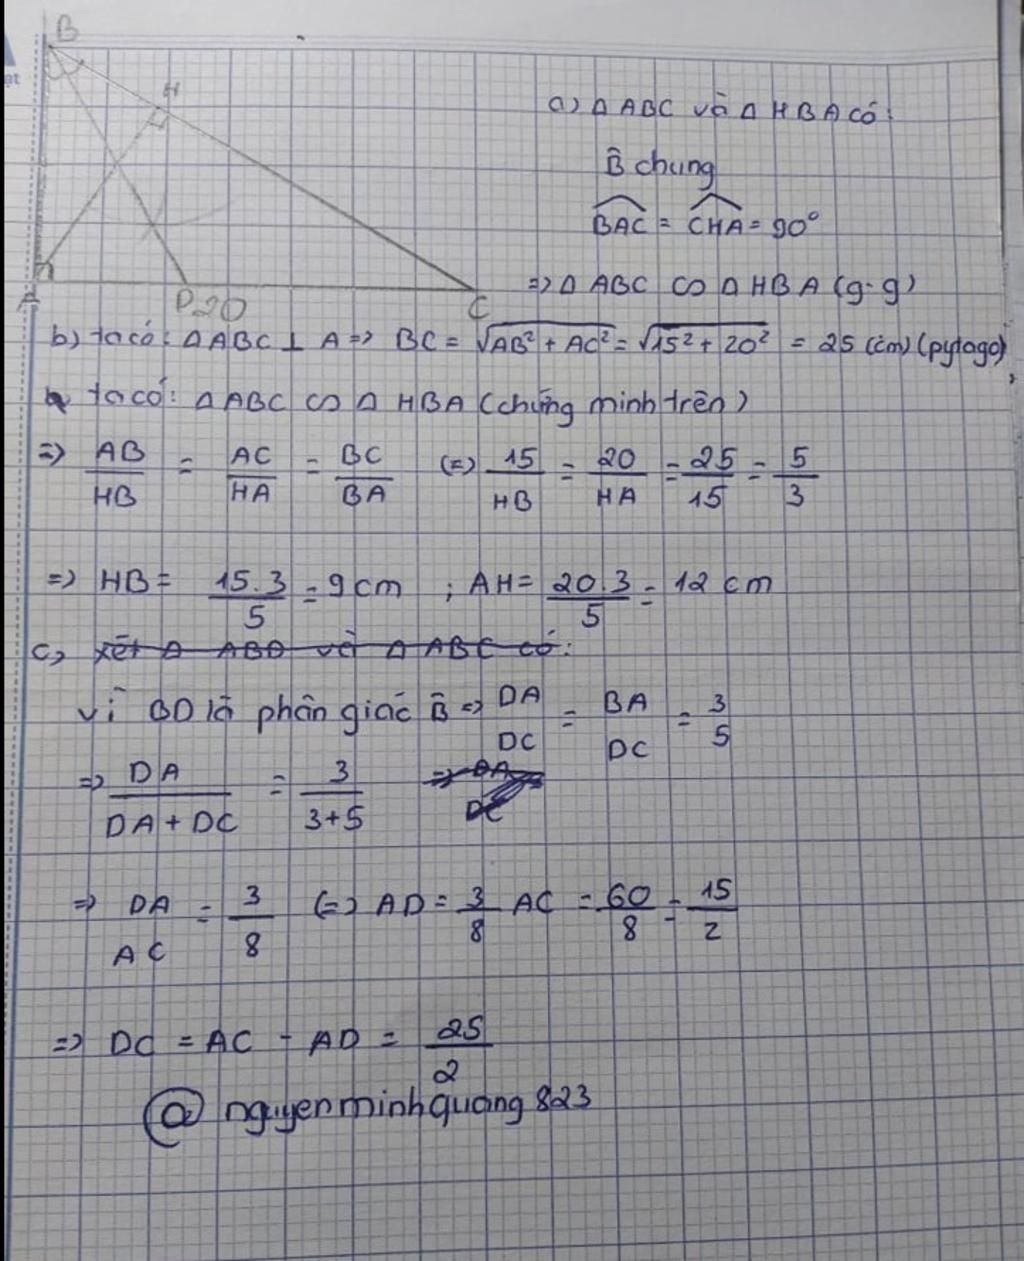 B
ạt
H
A
D 20
C
a) Δ ABC và Δ HBA có:
B̂ chung
B͡AC = C͡HA = 90°
=> Δ ABC ∽ Δ HBA (g.g)
b) ta có: Δ ABC ⊥ A => BC = √AB² + AC² = √15² + 20² = 25 (cm) (pytago),
ta có: Δ ABC ∽ Δ HBA (chứng minh trên)
=> AB/HB = AC/HA = BC/BA (=) 15/HB = 20/HA = 25/15 = 5/3
=> HB = 15.3/5 = 9 cm ; AH = 20.3/5 = 12 cm
c, xét Δ ABD và Δ ABC có:
Vì BD là phân giác B̂ => DA/DC = BA/DC = 3/5
=> DA/DA + DC = 3/3+5 => DA/DC
=> DA/AC = 3/8 (=) AD = 3/8 AC = 60/8 = 15/2
=> DC = AC - AD = 25/2
@ nguyenminhquang823